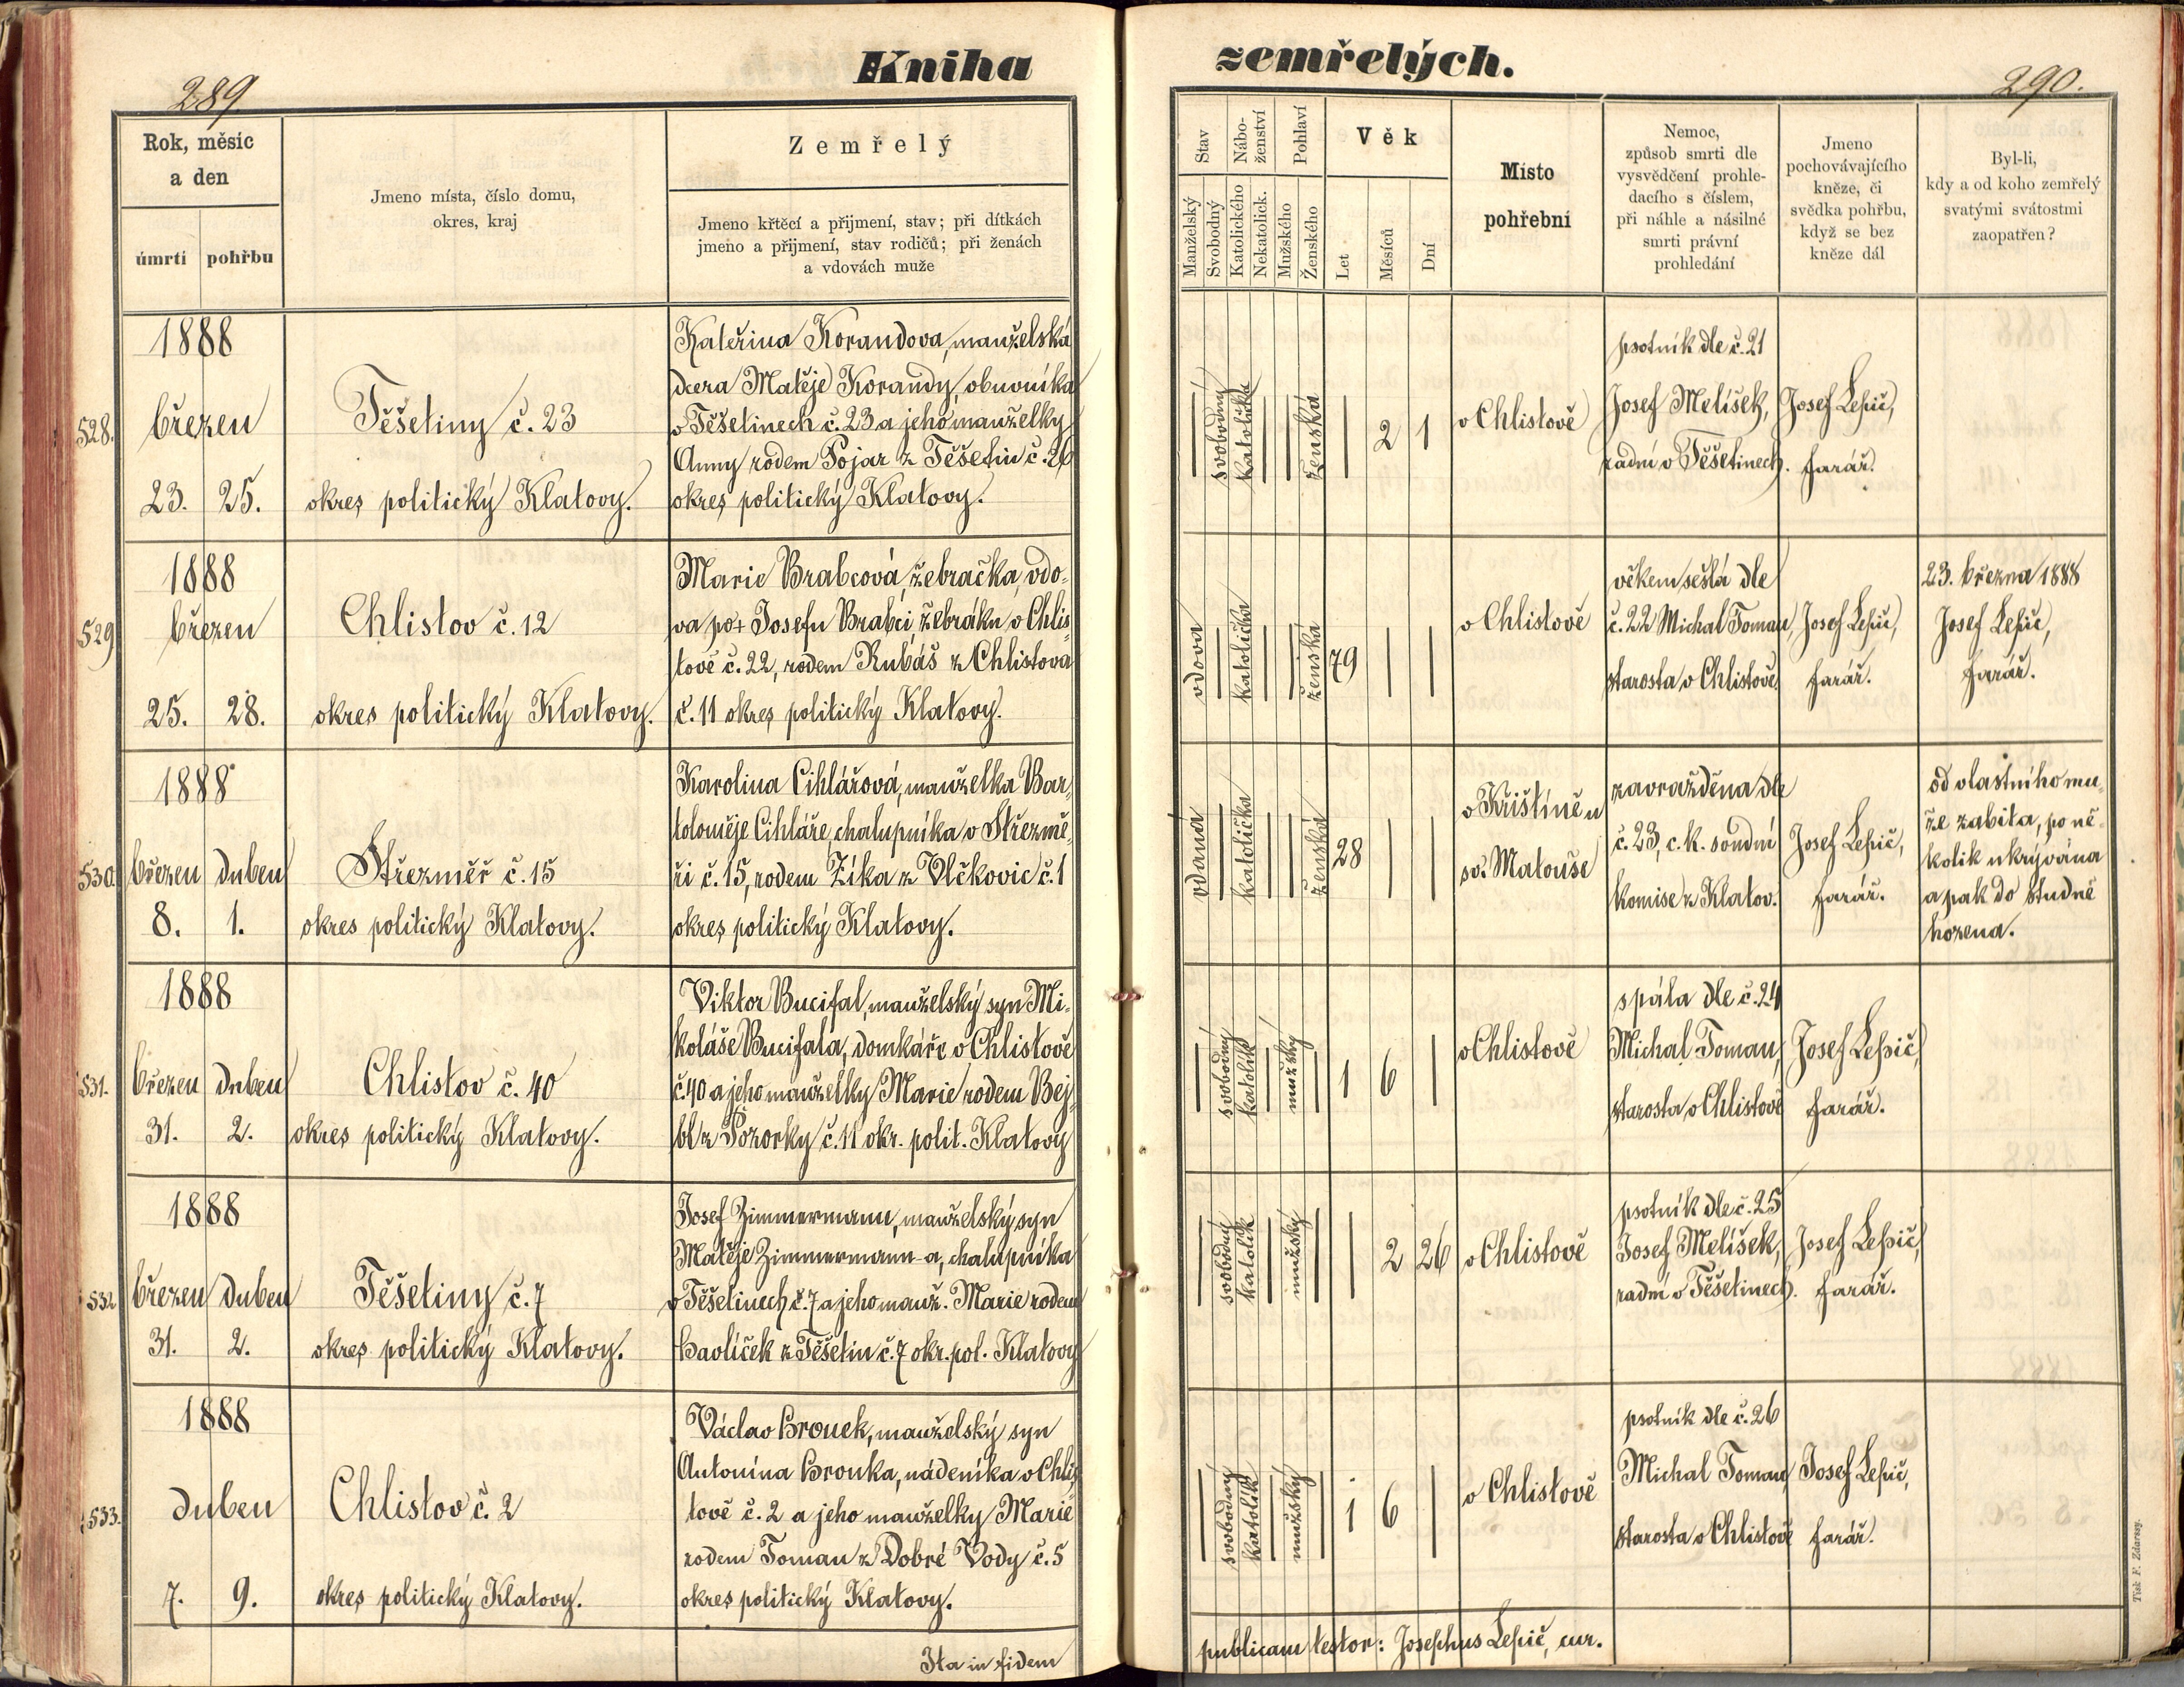 Kniha zemřelých.
289
290.
Rok, měsíc
a den
úmrtí
pohřbu
Jmeno místa, číslo domu,
okres, kraj
Zemřelý
Jmeno křtěcí a přijmení, stav; při dítkách
jmeno a přijmení, stav rodičů; při ženách
a vdovách muže
Stav
Manželský
Svobodný
Nábo-
ženství
Katolického
Nekatolick.
Pohlaví
Mužského
Ženského
Věk
Let
Měsíců
Dní
Místo
pohřební
Nemoc,
způsob smrti dle
vysvědčení prohle-
dacího s číslem,
při náhle a násilné
smrti právní
prohledání
Jmeno
pochovávajícího
kněze, či
svědka pohřbu,
když se bez
kněze dál
Byl-li,
kdy a od koho zemřelý
svatými svátostmi
zaopatřen?
528.
1888
březen
23. 25.
Těšetiny č. 23
okres politický Klatovy.
Kateřina Korandova, manželská
dcera Matěje Korandy, obuvníka
v Těšetinech č. 23 a jeho manželky
Anny rodem Pojar z Těšetin č. 26
okres politický Klatovy.
svobodný
katolička
ženská
2 1
v Chlistově
psotník dle č. 21
Josef Melíšek,
radní v Těšetinech.
Josef Lepič,
farář.
529
1888
březen
25. 28.
Chlistov č. 12
okres politický Klatovy.
Marie Brabcová, žebračka, vdo-
va po + Josefu Brabci, žebráku v Chlis-
tově č. 22, rodem Rubáš z Chlistova
č. 11 okres politický Klatovy.
vdova
katolička
ženská
79
v Chlistově
věkem sešlá dle
č. 22 Michal Toman,
starosta v Chlistově.
Josef Lepič,
farář.
23. března 1888
Josef Lepič,
farář.
530.
1888
březen duben
8. 1.
Střezměř č. 15
okres politický Klatovy.
Karolina Cihlářová, manželka Bar-
toloměje Cihláře, chalupníka v Střezmě-
ři č. 15, rodem Zíka z Vlčkovic č. 1
okres politický Klatovy.
vdaná
katolička
ženská
28
v Krištíně u
sv. Matouše
zavražděna dle
č. 23, c. k. soudní
komise z Klatov.
Josef Lepič,
farář.
od vlastního mu-
že zabita, po ně-
kolik ukrývána
a pak do studně
hozena.
531.
1888
březen duben
31. 2.
Chlistov č. 40
okres politický Klatovy.
Viktor Bucifal, manželský syn Mi-
koláše Bucifala, domkáře v Chlistově
č. 40 a jeho manželky Marie rodem Bej-
bl z Pozorky č. 11 okr. polit. Klatovy
svobodný
katolík
mužský
1 6
v Chlistově
spála dle č. 24
Michal Toman,
starosta v Chlistově
Josef Lepič,
farář.
532
1888
březen duben
31. 2.
Těšetiny č. 7
okres politický Klatovy.
Josef Zimmermann, manželský syn
Matěje Zimmermann-a, chalupníka
v Těšetinech č. 7 a jeho manž. Marie rodem
Havlíček z Těšetin č. 7 okr. pol. Klatovy
svobodný
katolík
mužský
2 26
v Chlistově
psotník dle č. 25
Josef Melíšek,
radní v Těšetinech.
Josef Lepič,
farář.
533.
1888
duben
7. 9.
Chlistov č. 2
okres politický Klatovy.
Václav Brouek, manželský syn
Antonína Brouka, nádeníka v Chlis-
tově č. 2 a jeho manželky Marie
rodem Toman z Dobré Vody č. 5
okres politický Klatovy.
svobodný
katolík
mužský
1 6
v Chlistově
psotník dle č. 26
Michal Toman,
starosta v Chlistově
Josef Lepič,
farář.
Ita in fidem publicam testor: Josephus Lepič, cur.
Tisk F. Zdarssy.